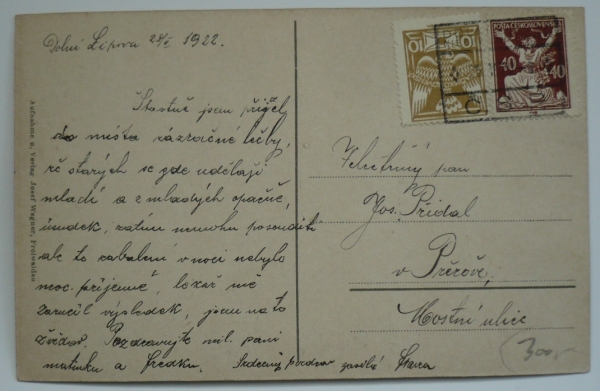 Dolní Lipova 28/V 1922.
Šťastně jsem přijel
do města zázračné léčby,
že starých se zde udělají
mladí a z mladých opačně,
úsudek, zatím mnoho posouditi
ale to zabalení v noci nebylo
moc příjemné, lékař mě
zaručil výsledek, jsem na to
zvědav. Pozdravujte mil. paní
matinku a Fredku. Srdečný pozdrav zasílá
Aufnahme u. Verlag Josef Wagner, Freiwaldau
10 10
POŠTA ČESKOSLOVENSKÁ
40 40
Velectěný pan
Jos. Přidal
v Přerově,
Mostní ulice
300,-